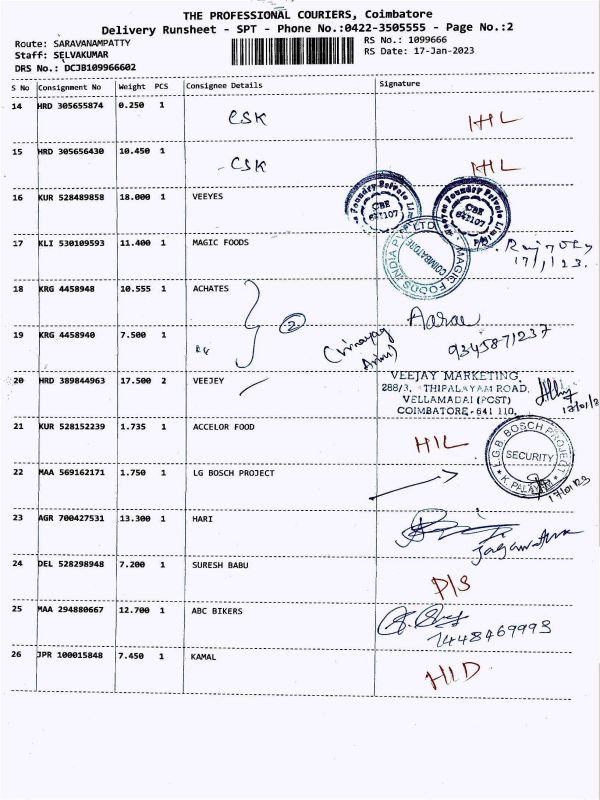 THE PROFESSIONAL COURIERS, Coimbatore
Delivery Runsheet - SPT - Phone No.:0422-3505555 - Page No.:2
Route: SARAVANAMPATTY
RS No.: 1099666
Staff: SELVAKUMAR
RS Date: 17-Jan-2023
DRS No.: DCJB109966602
S No Consignment No Weight PCS Consignee Details Signature
14 HRD 305655874 0.250 1 CSK
15 HRD 305656430 10.450 1 - CSK
16 KUR 528489858 18.000 1 VEEYES
Foundry Private
CBE
641107
Veeyes Foundry Private Limi
CBE
641107
17 KLI 530109593 11.400 1 MAGIC FOODS
MAGIC FOODS INDIA PVT LTD
COIMBATORE
18 KRG 4458948 10.555 1 ACHATES
2
19 KRG 4458940 7.500 1
9345871237
20 HRD 389844963 17.500 2 VEEJEY
VEEJAY MARKETING
288/3, THIPALAYAM ROAD,
VELLAMADAI (POST)
COIMBATORE-641 110.
21 KUR 528152239 1.735 1 ACCELOR FOOD
L.G.B. BOSCH PROJECT
SECURITY
K. PALAYAM
17/01/23
22 MAA 569162171 1.750 1 LG BOSCH PROJECT
23 AGR 700427531 13.300 1 HARI
24 DEL 528298948 7.200 1 SURESH BABU P/S
25 MAA 294880667 12.700 1 ABC BIKERS
7448469993
26 JPR 100015848 7.450 1 KAMAL